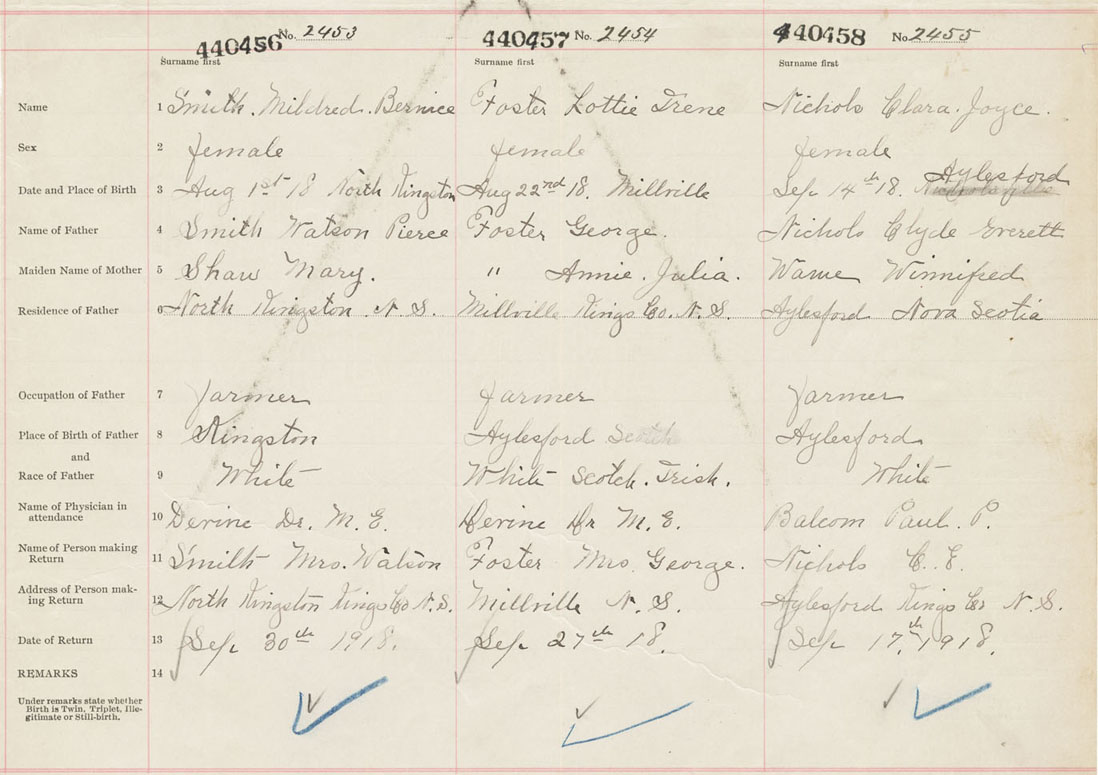 440456 No. 2453 440457 No. 2454 440458 No. 2455
Surname first Surname first Surname first
Name 1 Smith. Mildred. Bernice Foster Lottie Irene Nichols Clara. Joyce.
Sex 2 female female female
Date and Place of Birth 3 Aug 1st 18 North Kingston Aug 22nd 18. Millville Sep 14th 18. Aylesford
Name of Father 4 Smith Watson Pierce Foster George. Nichols Clyde Everett
Maiden Name of Mother 5 Shaw Mary. " Annie. Julia. Winnifred
Residence of Father 6 North Kingston. N. S. Millville Kings Co. N. S. Aylesford Nova Scotia
Occupation of Father 7 farmer farmer farmer
Place of Birth of Father 8 Kingston Aylesford Scotch Aylesford
and
Race of Father 9 White White Scotch. Irish. White
Name of Physician in
attendance 10 Devine Dr. M. E. Devine Dr M. E. Balcom Paul. P.
Name of Person making
Return 11 Smith Mrs. Watson Foster Mrs. George. Nichols C. E.
Address of Person mak-
ing Return 12 North Kingston Kings Co N. S. Millville N. S. Aylesford Kings Co N. S.
Date of Return 13 Sep 30th 1918. Sep 27th 18. Sep 17th, 1918.
REMARKS 14
Under remarks state whether
Birth is Twin, Triplet, Ille-
gitimate or Still-birth.